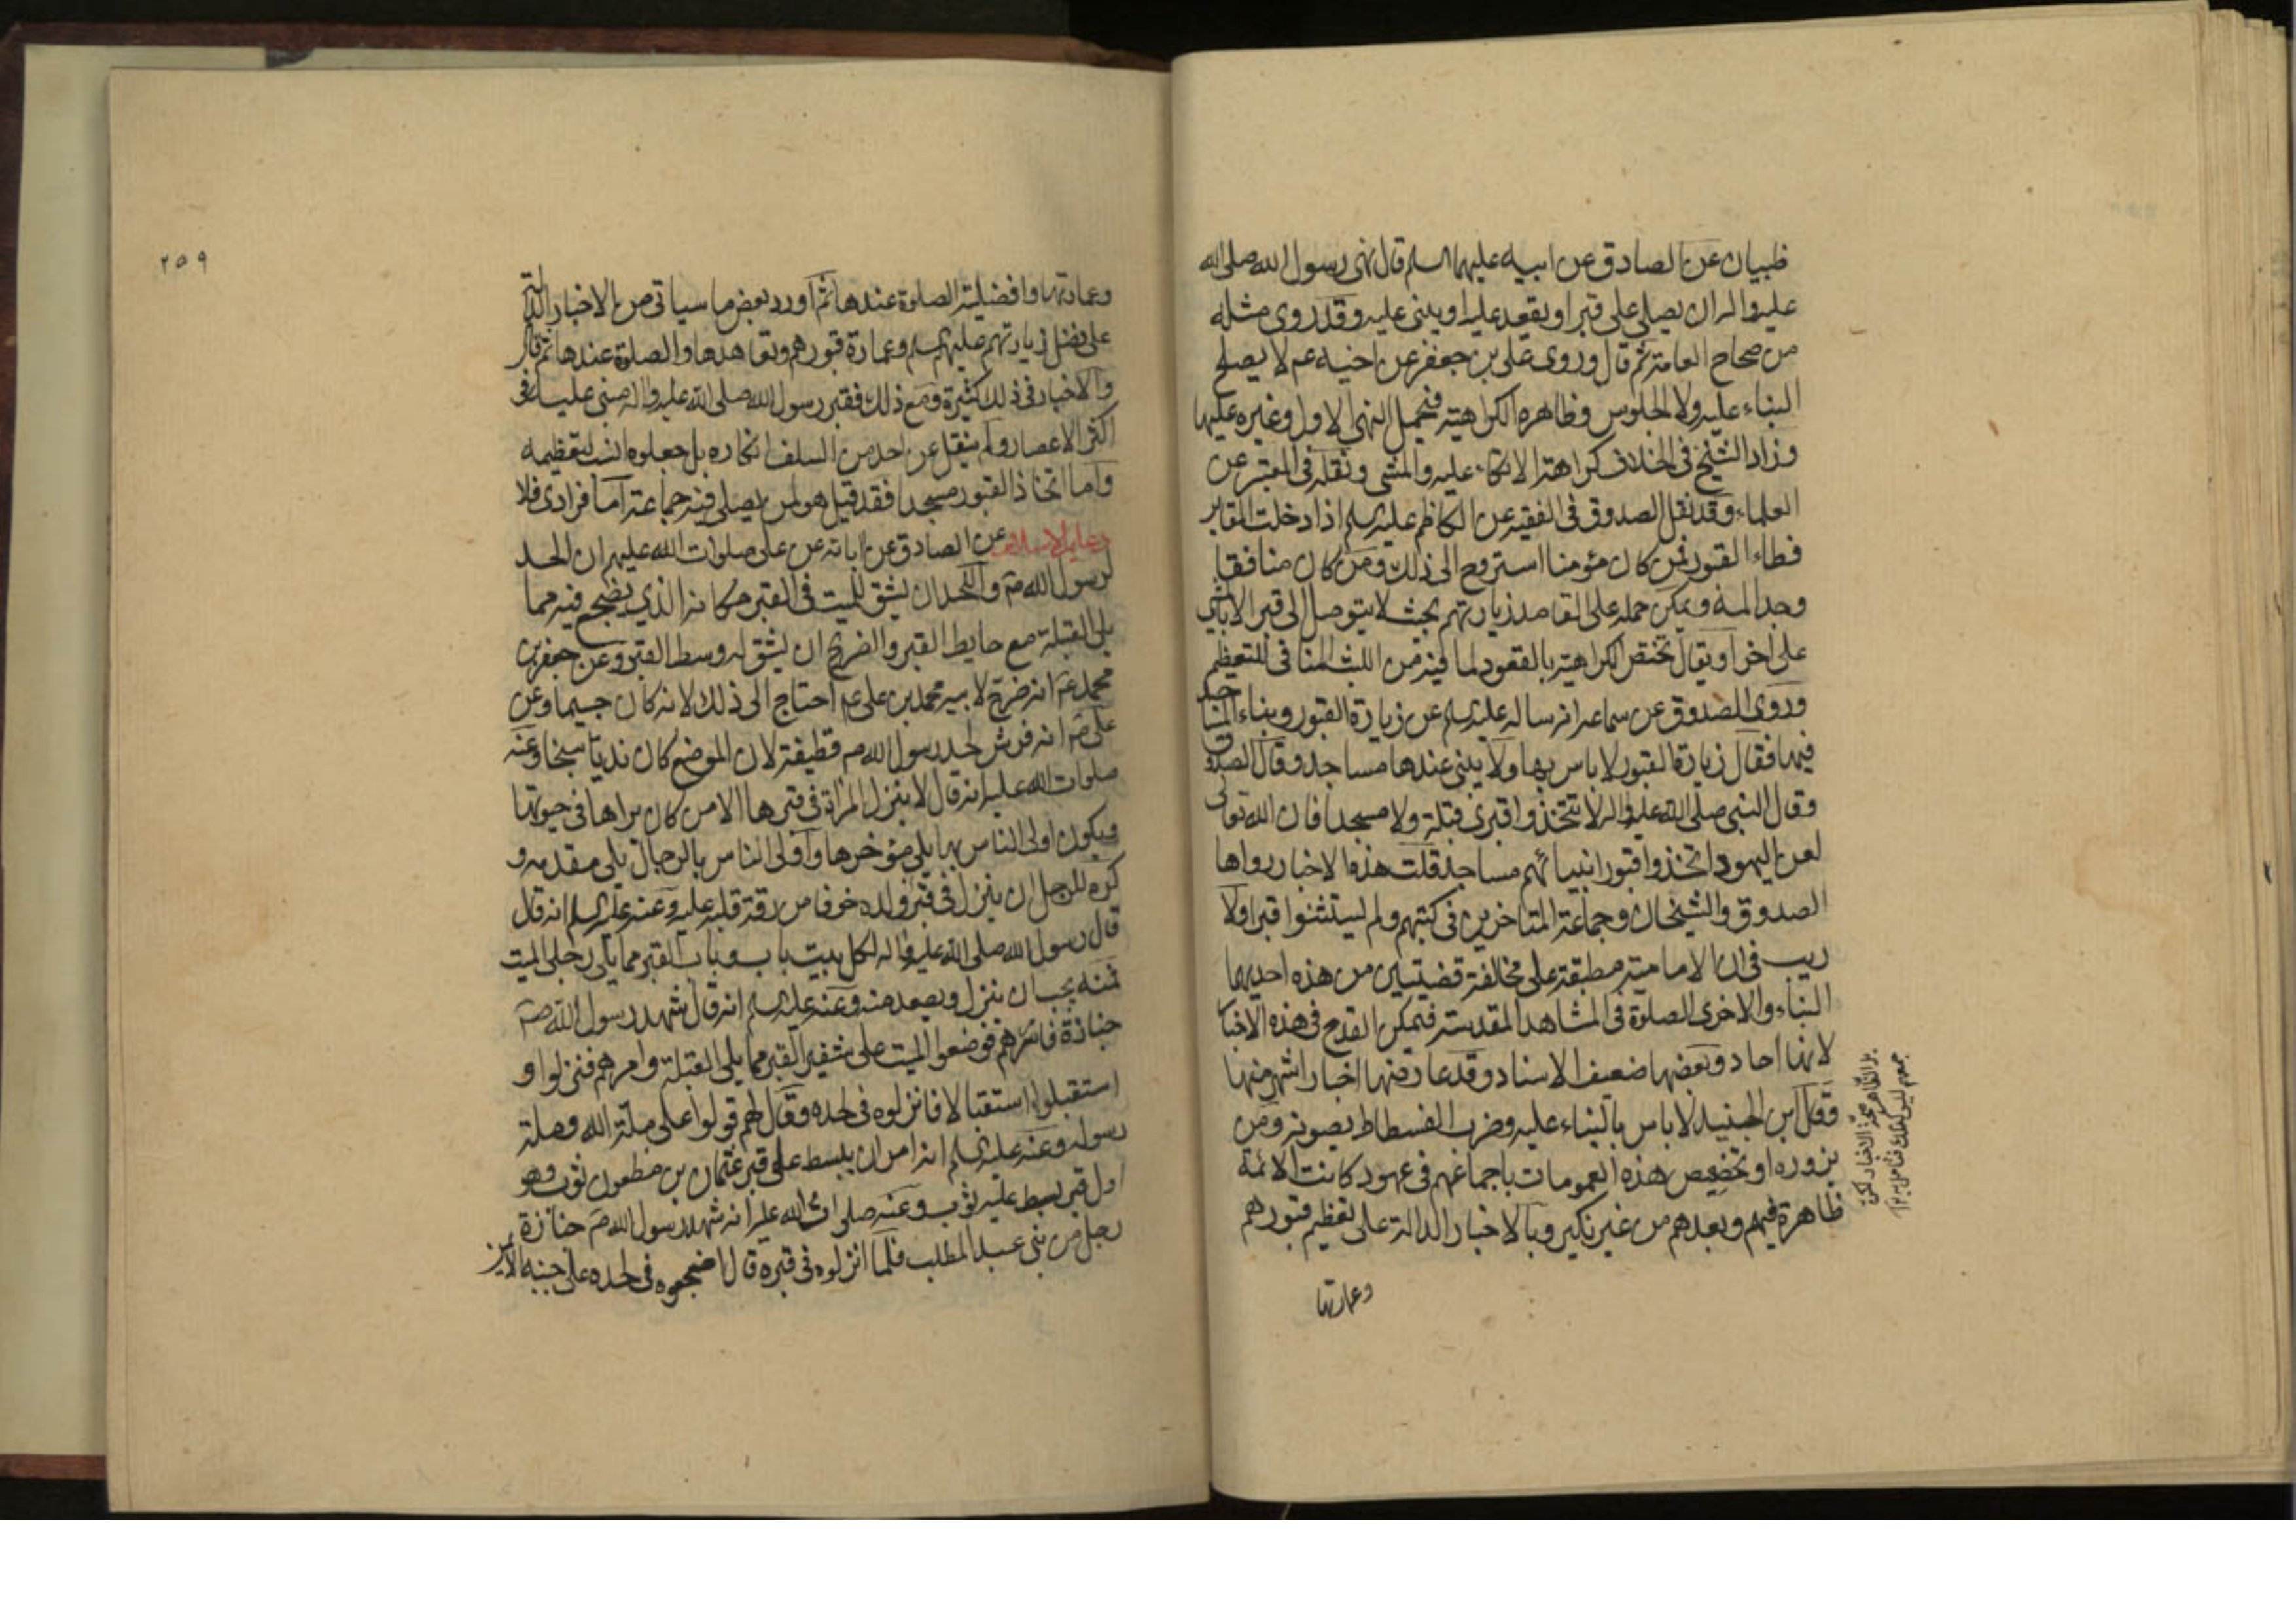 ظبيان عن الصادق عن ابيه عليهما السلم قال نهى رسول الله صلى الله
عليه واله ان يصلى على قبر او يقعد عليه او يبنى عليه وقد روى مثله
من صحاح العامة ثم قال وروى على بن جعفر عن اخيه عم لا يصلح
البناء عليه ولا الجلوس وظاهره الكراهية فيحمل النهى الاول وغيره عليها
وزاد الشيخ فى الخلاف كراهة الاتكاء عليه والمشى ونقله فى المعتبر عن
العلماء وقد نقل الصدوق فى الفقيه عن الكاظم عليه السلم اذا دخلت المقابر
فطاء القبور فمن كان مؤمنا استروح الى ذلك ومن كان منافقا
وجد المه ويمكن حمله على القاصد زيارتهم بحيث لا يتوصل الى قبر الا بالمشى
على اخر او يقال تختص الكراهية بالقعود لما فيه من اللبث المنافى للتعظيم
وروى الصدوق عن سماعه انه ساله عليه السلم عن زيارة القبور وبناء المساجد
فيها فقال زيارة القبور لا باس بها ولا يبنى عندها مساجد وقال الصدوق
وقال النبى صلى الله عليه واله لا تتخذوا قبرى قبلة ولا مسجدا فان الله تعالى
لعن اليهود اتخذوا قبور انبيائهم مساجد قلت هذه الاخبار رواها
الصدوق والشيخان وجماعة المتاخرين فى كتبهم ولم يستثنوا قبرا ولا
ريب فى ان الامامية مطبقة على مخالفة قضيتين من هذه احديهما
البناء والاخرى الصلوة فى المشاهد المقدسة فيمكن القدح فى هذه الاخبار
لانها احاد وبعضها ضعيف الاسناد وقد عارضها اخبار اشهر منها
وقال ابن الجنيد لا باس بالبناء عليه وضرب الفسطاط يصونه ومن
يزوره او تخصيص هذه العمومات باجماعهم فى عهود كانت الائمة
ظاهرة فيهم وبعدهم من غير نكير وبالاخبار الدالة على تعظيم قبورهم
وعمارتها
٢٥٩
وعمارتها وافضلية الصلوة عندها ثم اورد بعض ما سياتى من الاخبار الدالة
على فضل زيارتهم عليهم السلم وعمارة قبورهم وتعاهدها والصلوة عندها ثم قال
والاخبار فى ذلك كثيرة ومع ذلك فقبر رسول الله صلى الله عليه واله مبنى عليه فى
اكثر الاعصار ولم ينقل عن احد من السلف انكاره بل جعلوه انسب لتعظيمه
واما اتخاذ القبور مسجدا فقد قيل هو لمن يصلى فيه جماعة اما فرادى فلا
دعايم الاسلام عن الصادق عن ابائه عن على صلوات الله عليهم ان الحد
لرسول الله ص واللحد ان يشق للميت فى القبر مكانه الذي يضجع فيه مما
يلى القبلة مع حايط القبر والضريح ان يشق له وسط القبر وعن جعفر بن
محمد ع انه ضرح لابيه محمد بن على عم احتاج الى ذلك لانه كان جسيما وعن
على ص انه فرش لحد رسول الله ص قطيفة لان الموضع كان نديا سبخا وعنه
صلوات الله عليه انه قال لا ينزل المراة فى قبرها الا من كان يراها فى حيوتها
ويكون اولى الناس بها يلى مؤخرها واولى الناس بالرجال يلى مقدمه و
كره للرجل ان ينزل فى قبر ولده خوفا من رقة قلبه عليه وعنه عليه السلم انه قال
قال رسول الله صلى الله عليه واله لكل بيت باب وباب القبر مما يلى رجلى الميت
فمنه يجب ان ينزل ويصعد منه وعنه عليه السلم انه قال شهد رسول الله ص
جنازة فامرهم فوضعوا الميت على شفير القبر مما يلى القبلة وامرهم فنزلوا و
استقبلوا استقبالا فانزلوه فى لحده وقال لهم قولوا على ملة الله وملة
رسوله وعنه عليه السلم انه امر ان يبسط على قبر عثمان بن مظعون ثوب وهو
اول قبر بسط عليه ثوب وعنه صلوات الله عليه انه شهد رسول الله ص جنازة
رجل من بنى عبد المطلب فلما انزلوه فى قبره قال اضجعوه فى لحده على جنبه الايمن